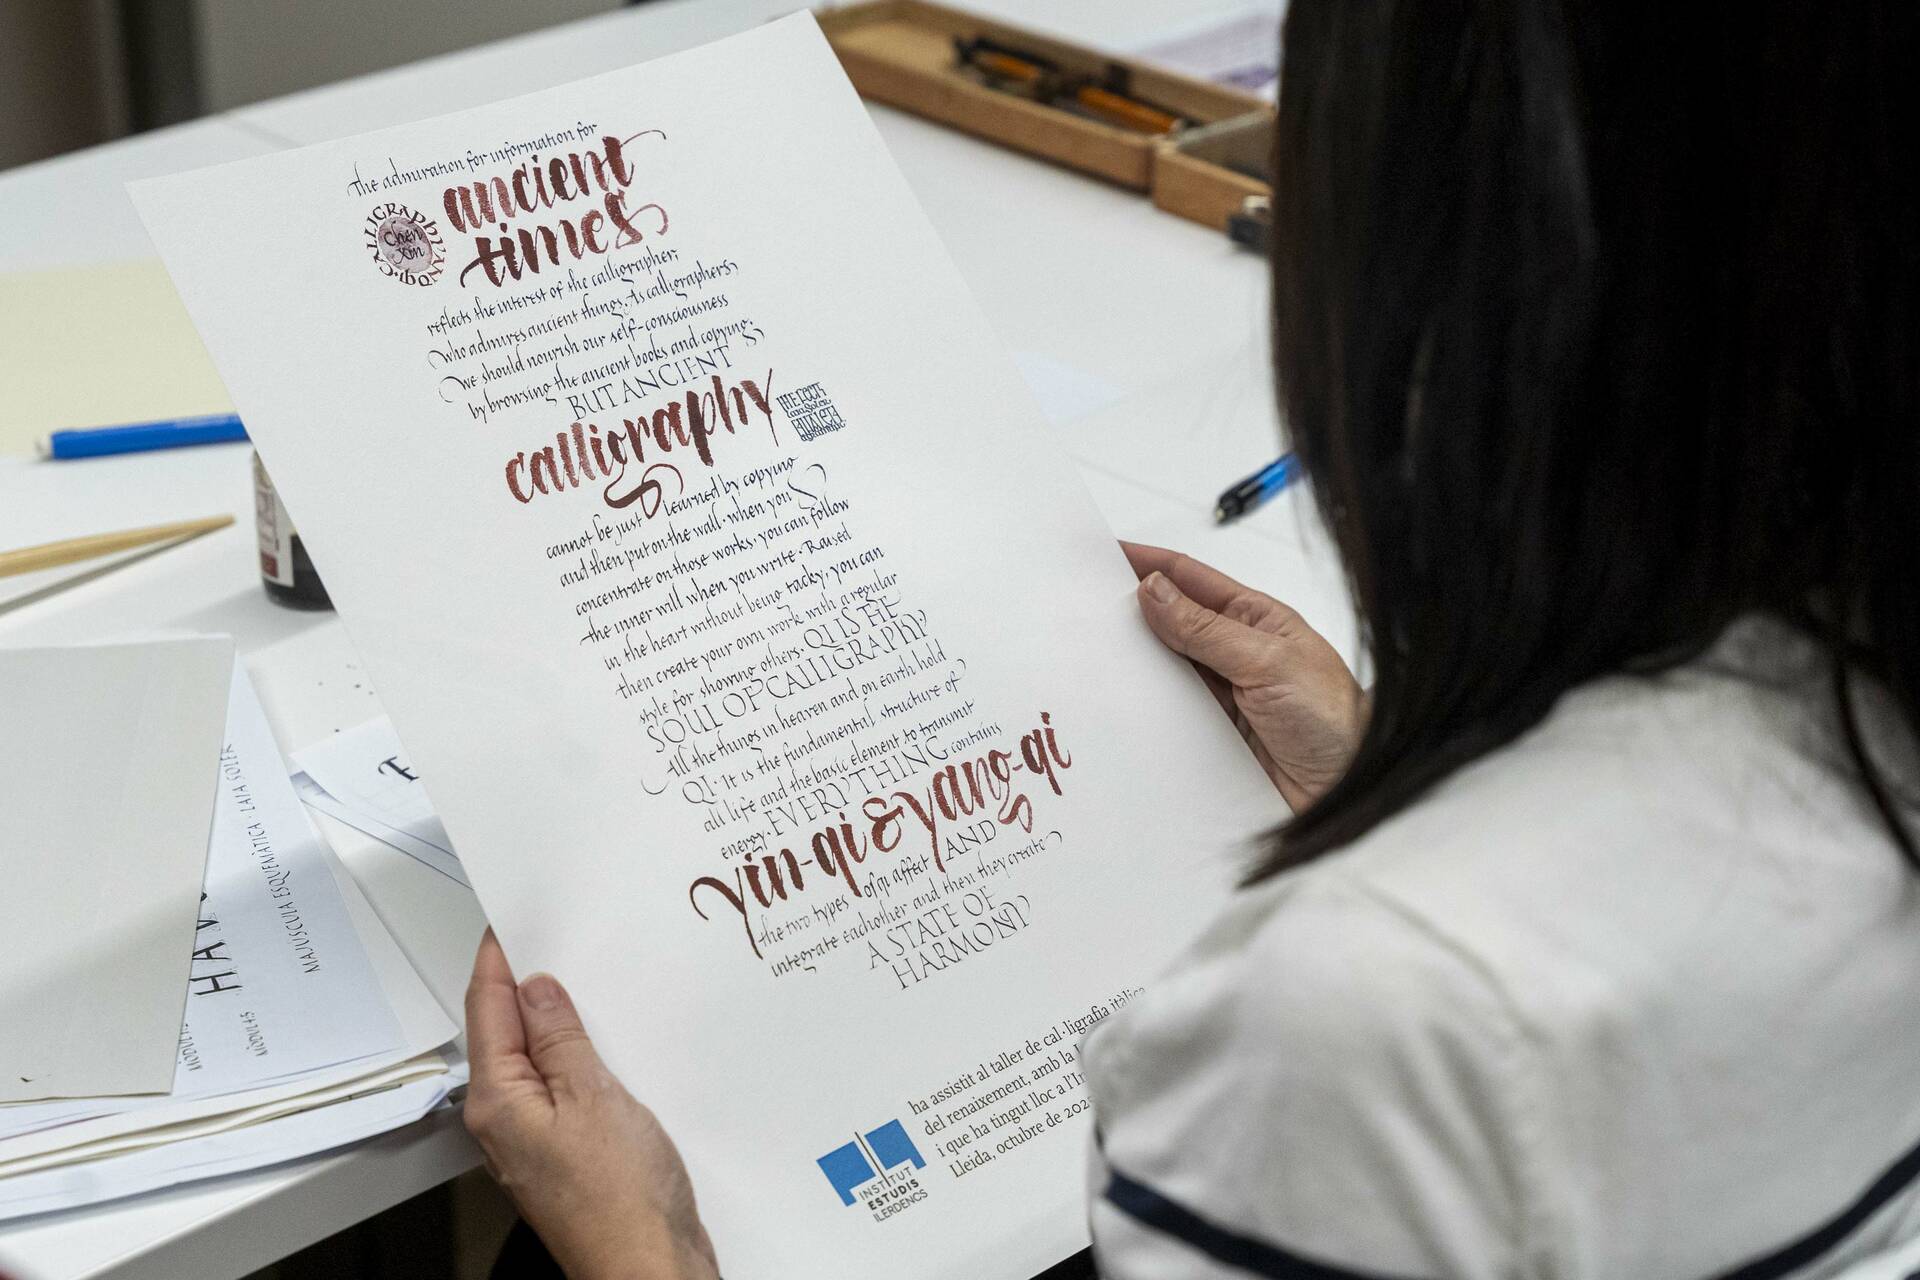 the admiration for information for
ancient
times
CALLIGRAPHY
Chen
Xin
reflects the interest of the calligrapher,
who admires ancient things. As calligraphers,
we should nourish our self-consciousness
by browsing the ancient books and copying.
BUT ANCIENT
calligraphy
cannot be just learned by copying
and then put on the wall. when you
concentrate on those works, you can follow
the inner will when you write. Raised
in the heart without being tacky, you can
then create your own work with a regular
style for showing others. QI IS THE
SOUL OF CALLIGRAPHY,
All the things in heaven and on earth hold
QI. It is the fundamental structure of
all life and the basic element to transmit
energy. EVERYTHING contains
yin-qi & yang-qi
the two types of qi affect AND
integrate eachother and then they create
A STATE OF
HARMONY
ha assistit al taller de cal·ligrafia itàlica
del renaixement, amb la
i que ha tingut lloc a l'In
Lleida, octubre de 202
INSTITUT
ESTUDIS
ILERDENCS
MINUSCULA ESQUEMÀTICA · LAIA SOLER
HAN
MÒDUL:5